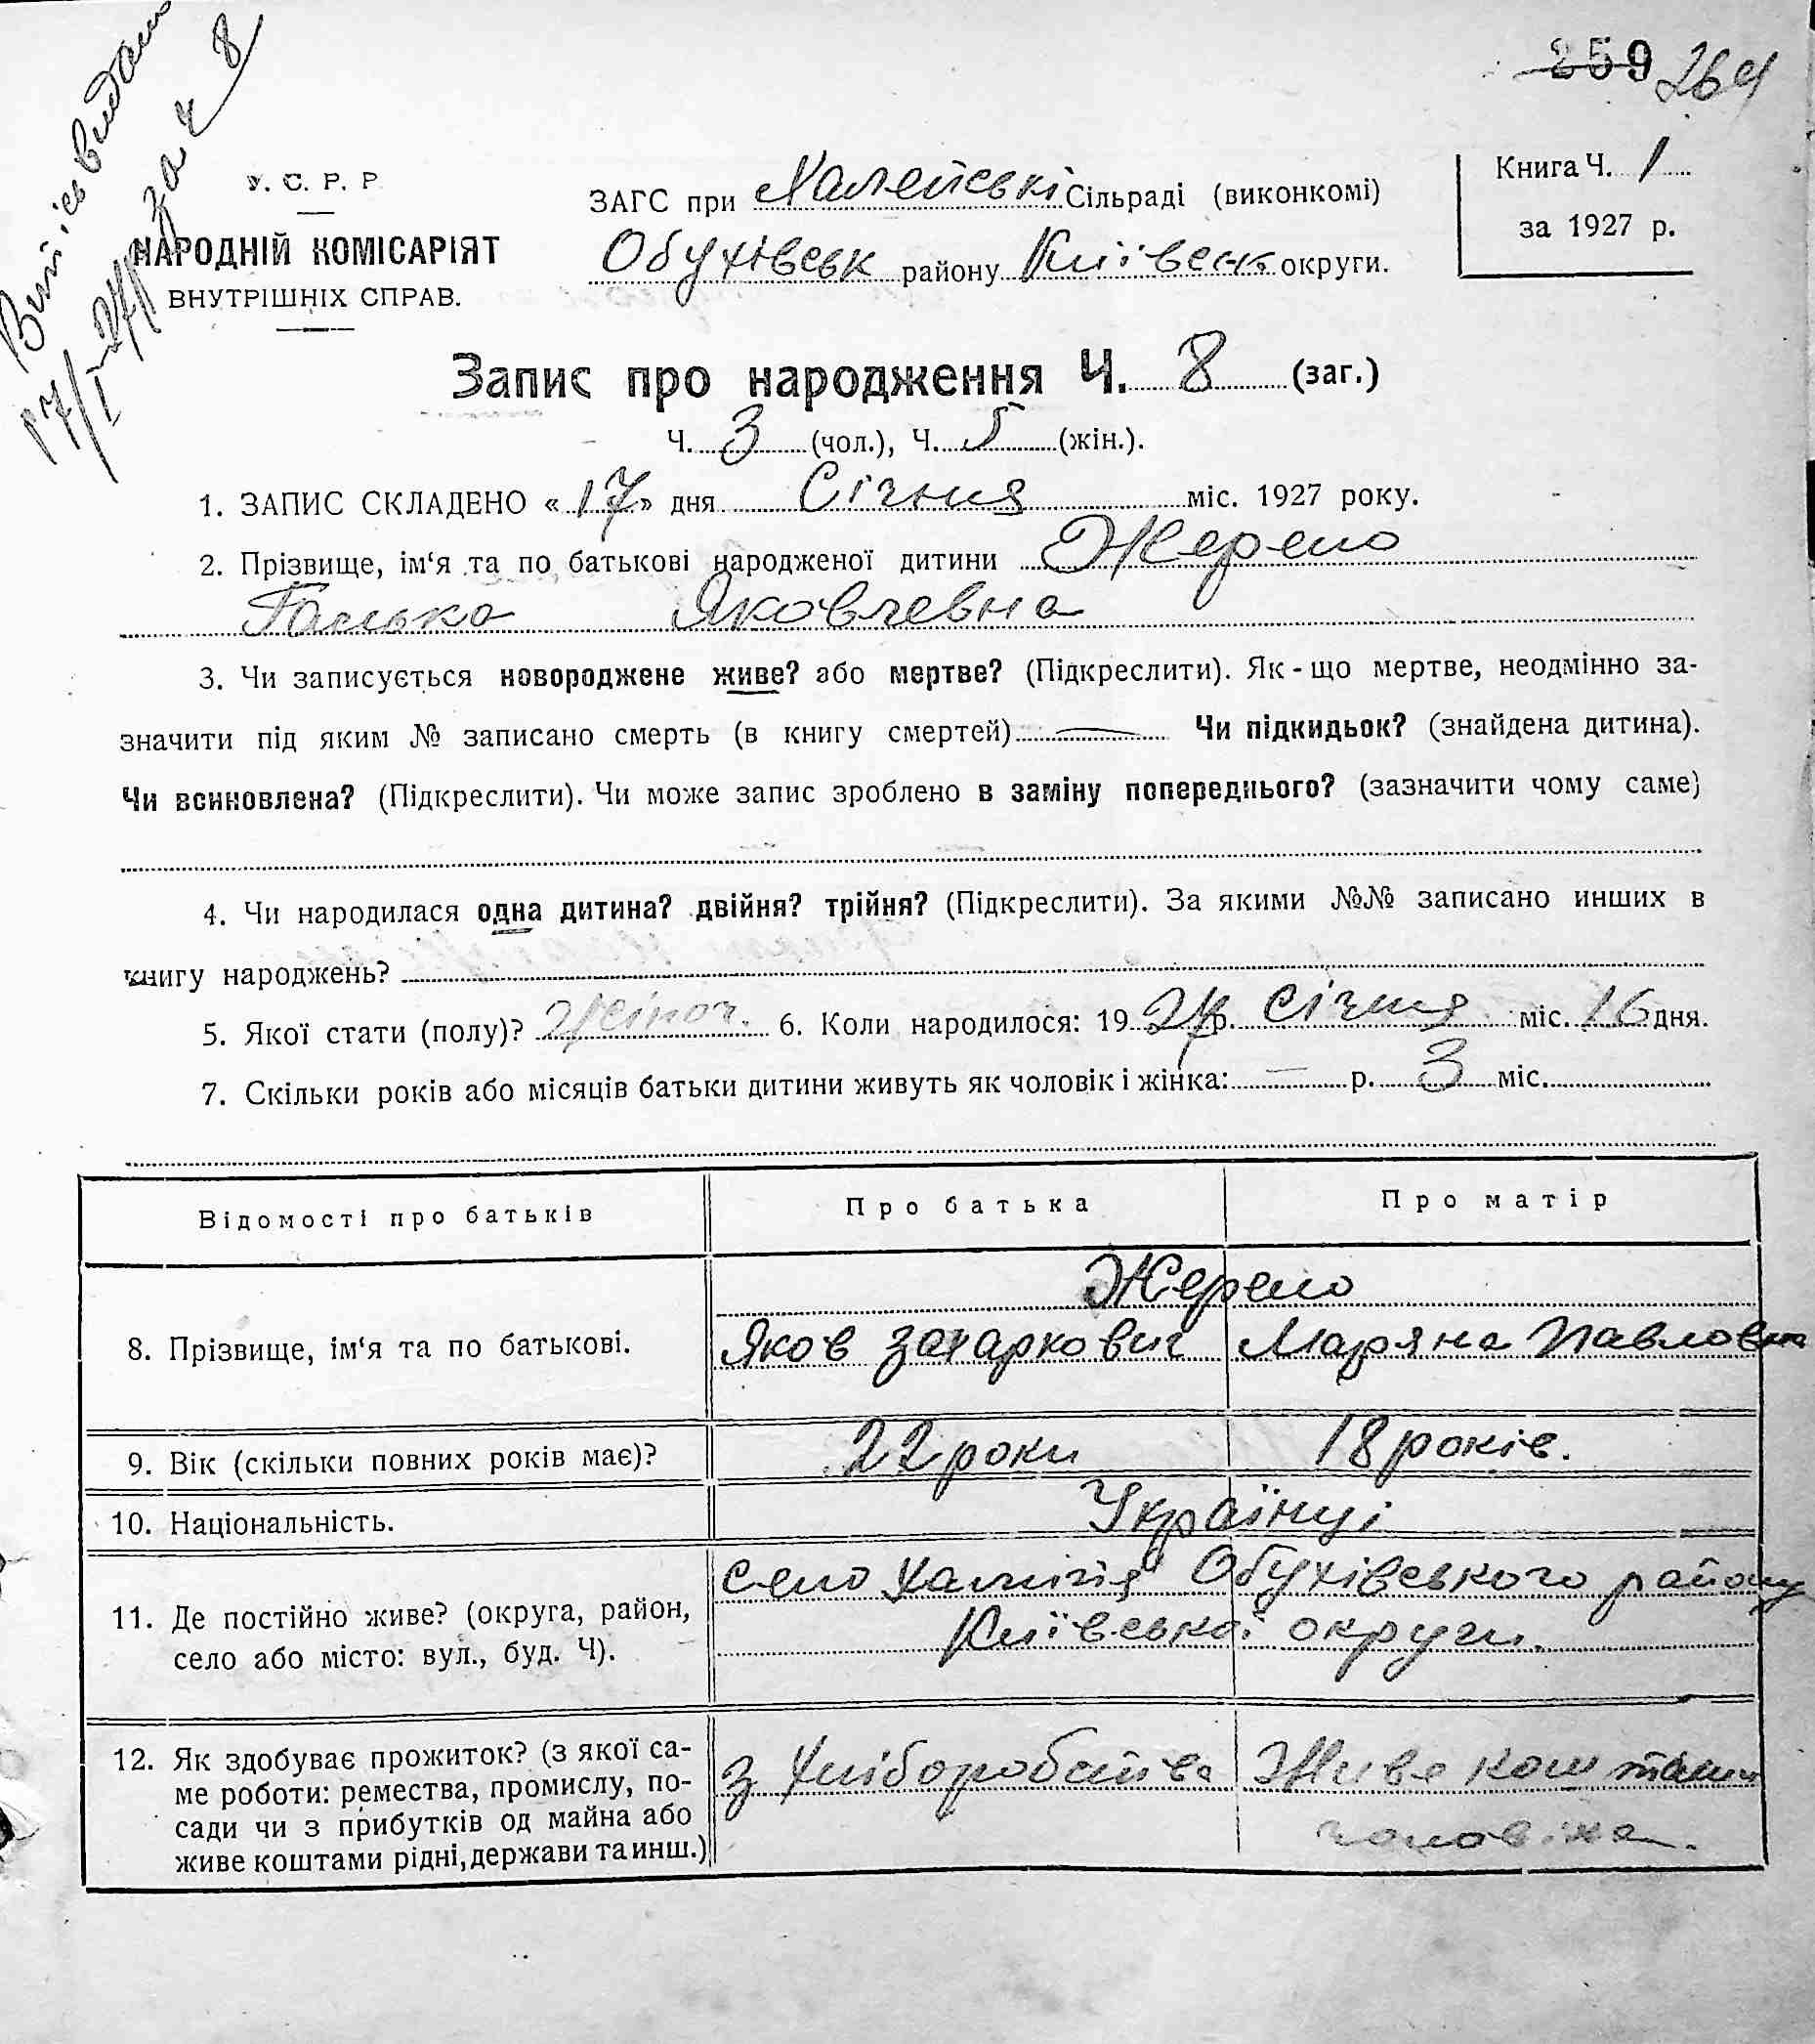 259 264
Витісь видано
17/I-27 р за ч 8
У. С. Р. Р
НАРОДНІЙ КОМІСАРІЯТ
ВНУТРІШНІХ СПРАВ.
ЗАГС при Халепські Сільраді (виконкомі)
Обухівськ району Київськ округи.
Книга Ч. 1
за 1927 р.
Запис про народження Ч. 8 (заг.)
Ч. 3 (чол.), Ч. 5 (жін.).
1. ЗАПИС СКЛАДЕНО «17» дня Січня міс. 1927 року.
2. Прізвище, ім‘я та по батькові народженої дитини Жерело
Галька Яковлевна
3. Чи записується новороджене живе? або мертве? (Підкреслити). Як-що мертве, неодмінно за-
значити під яким № записано смерть (в книгу смертей) — Чи підкидьок? (знайдена дитина).
Чи всиновлена? (Підкреслити). Чи може запис зроблено в заміну попереднього? (зазначити чому саме)
4. Чи народилася одна дитина? двійня? трійня? (Підкреслити). За якими №№ записано инших в
книгу народжень?
5. Якої стати (полу)? жіноч. 6. Коли народилося: 1927 р. Січня міс. 16 дня.
7. Скільки років або місяців батьки дитини живуть як чоловік і жінка: — р. 3 міс.
Відомості про батьків Про батька Про матір
Жерело
8. Прізвище, ім‘я та по батькові. Яков Захаркович Маряна Павловна
9. Вік (скільки повних років має)? 22 роки 18 років.
10. Національність. Українці
село Халепія Обухівського району
11. Де постійно живе? (округа, район, Київської округи.
село або місто: вул., буд. Ч).
12. Як здобуває прожиток? (з якої са-
ме роботи: ремества, промислу, по- з хліборобства Живе коштами
сади чи з прибутків од майна або чоловіка.
живе коштами рідні, держави та инш.)